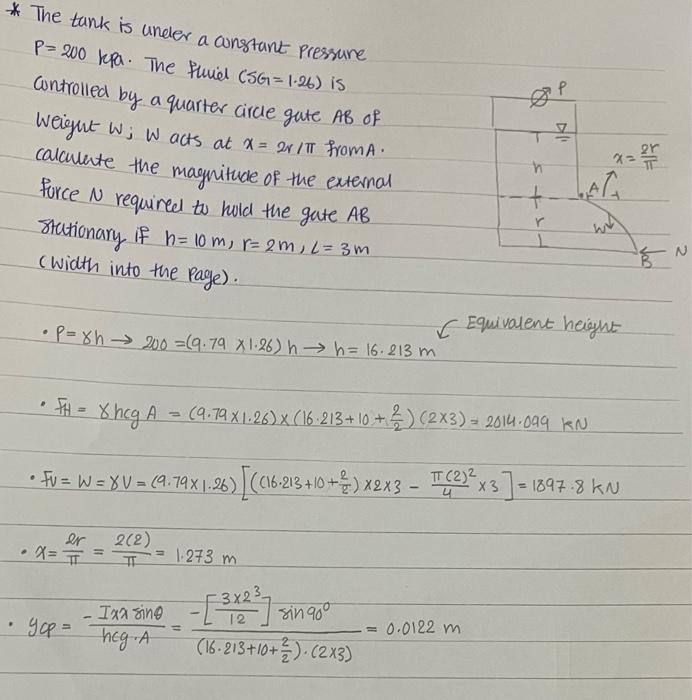 * The tank is under a constant pressure
P= 200 kpa. The fluid (SG=1.26) is
controlled by a quarter circle gate AB of
weight W; W acts at x = 2r/π from A.
calculate the magnitude of the external
force N required to hold the gate AB
stationary if h= 10 m, r= 2m, L= 3m
(width into the page).
P
h
r
x = 2r/π
A
W
B
N
Equivalent height
• P= γh → 200 =(9.79 ×1.26) h → h= 16.213 m
• FH = γ hcg A = (9.79×1.26)×(16.213+10+2/2)(2×3) = 2014.099 kN
• FV = W = γV = (9.79×1.26)[((16.213+10+2/2)×2×3 - π(2)²/4 ×3] = 1897.8 kN
• x= 2r/π = 2(2)/π = 1.273 m
• ycp = -Ixx sinθ / hcg.A = -[3×2³/12] sin90° / (16.213+10+2/2).(2×3) = 0.0122 m